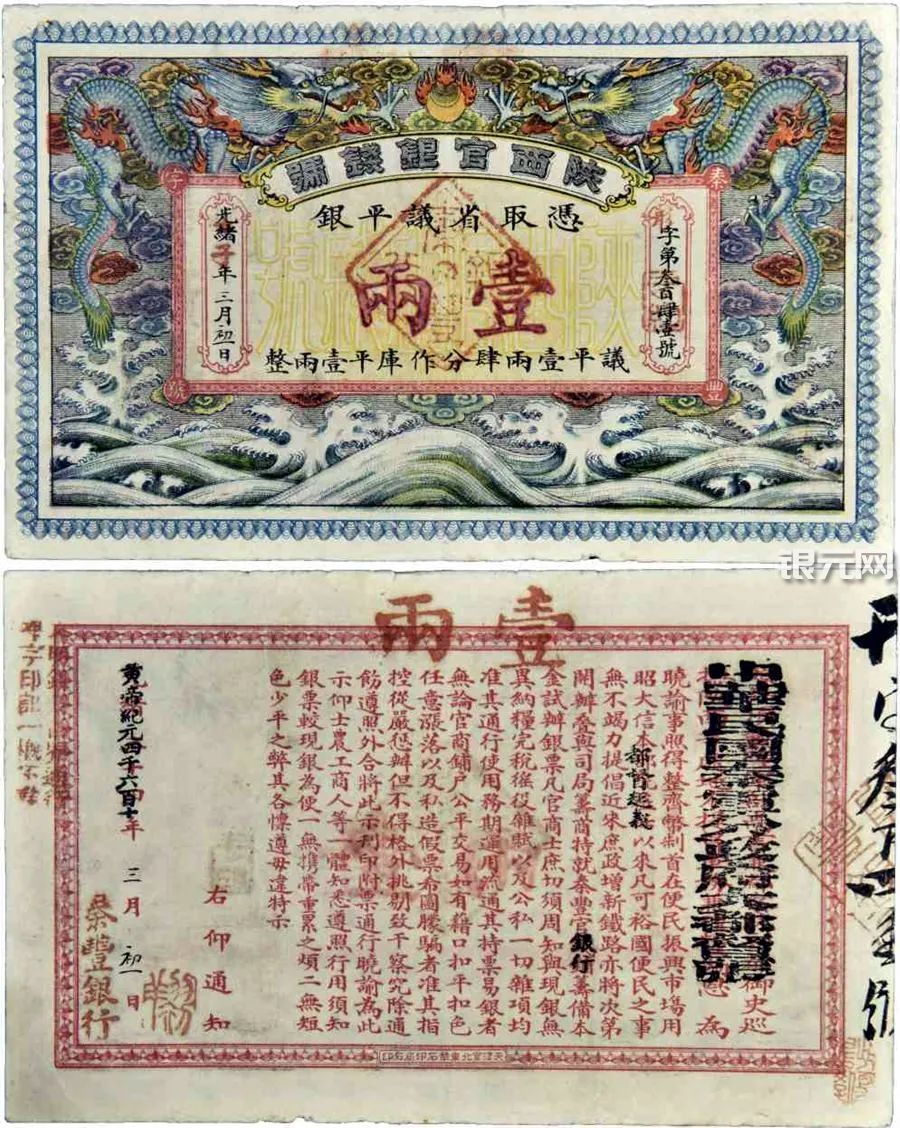 陝西官銀錢號
憑取省議平銀
壹兩
議平壹兩肆分作庫平壹兩整
字第叁百肆壹號
光緒子年三月初一日
秦
豐
字
號
银元网
壹兩
中華民國秦軍政府大都督
御史巡
為
曉諭事照得整齊幣制首在便民振興市塲用
昭大信本
以來凡可裕國便民之事
無不竭力提倡近来庶政增新鐵路亦將次第
都督延義
開辦叠與司局籌商特就秦豐官銀行籌備本
金試辦銀票凡官商士庶切須周知與現銀無
異納糧完稅徭役雜賦以及公私一切雜項均
准其通行使用務期運用流通其持票易銀者
無論官商鋪户公平交易如有藉口扣平扣色
任意漲落以及私造假票希圖朦騙者准其指
控從嚴懲辦但不得格外挑剔致干察究除通
飭遵照外合將此示刋印附票通行曉諭為此
示仰士農工商人等一體知悉遵照行用須知
銀票較現銀為便一無携帶重累之煩二無短
色少平之弊其各懔遵毋違特示
右仰通知
黄帝紀元四千六百十年三月初一日
秦豐銀行
天津官北東華石印局石印